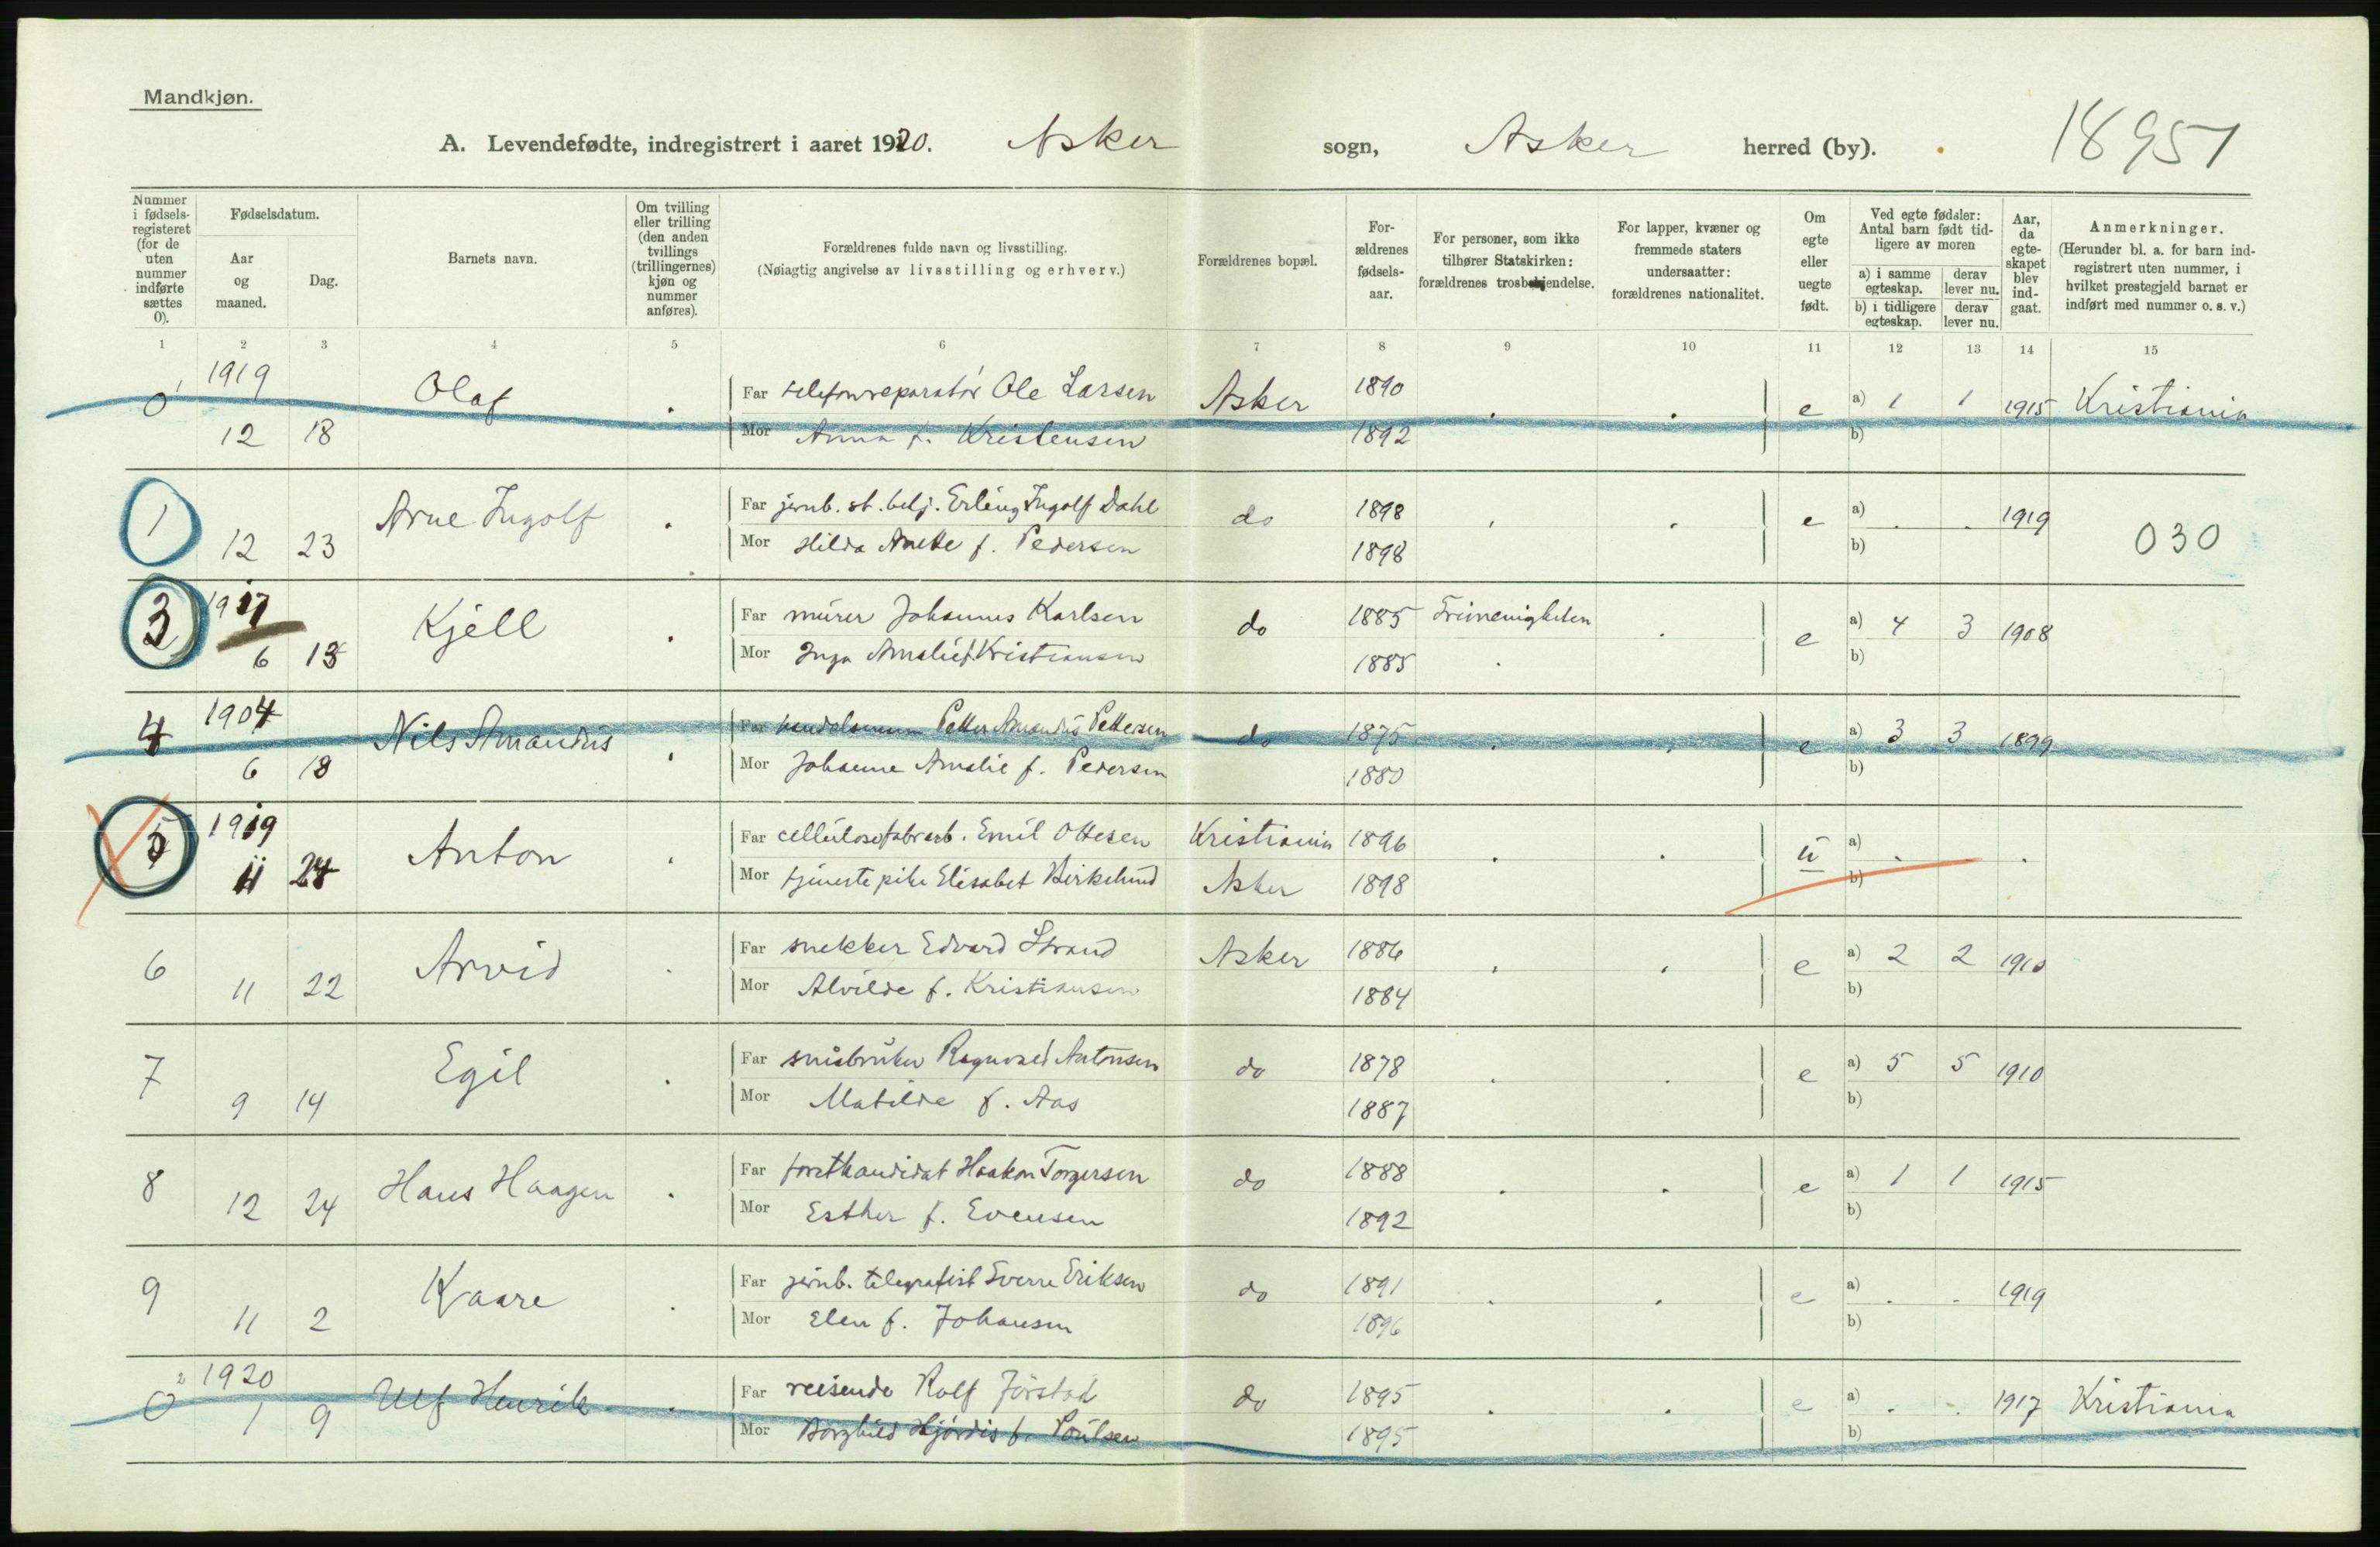 Mandkjøn.
A. Levendefødte, indregistrert i aaret 1920. Asker sogn, Asker herred (by). 18951
Nummer i fødsels-registeret (for de uten nummer indførte sættes 0).
Fødselsdatum.
Aar og maaned.
Dag.
Barnets navn.
Om tvilling eller trilling (den anden tvillings (trillingernes) kjøn og nummer anføres).
Forældrenes fulde navn og livsstilling.
(Nøiagtig angivelse av livsstilling og erhverv.)
Forældrenes bopæl.
For-ældrenes fødsels-aar.
For personer, som ikke tilhører Statskirken: forældrenes trosbekjendelse.
For lapper, kvæner og fremmede staters undersaatter: forældrenes nationalitet.
Om egte eller uegte født.
Ved egte fødsler: Antal barn født tid-ligere av moren
a) i samme egteskap. derav lever nu.
b) i tidligere egteskap. derav lever nu.
Aar, da egte-skapet blev ind-gaat.
Anmerkninger.
(Herunder bl. a. for barn ind-registrert uten nummer, i hvilket prestegjeld barnet er indført med nummer o. s. v.)
1 2 3 4 5 6 7 8 9 10 11 12 13 14 15
0 1 1919 Olaf . Far telefonreparatør Ole Larsen Asker 1890 . . e a) 1 1 1915 Kristiania
12 18 Mor Anna f. Kristensen 1892 b)
1 Arne Ingolf . Far jernb. st. betj. Erling Ingolf Dahl do 1898 . . e a) . . 1919 030
12 23 Mor Hilda Anette f. Pedersen 1898 b)
3 1917 Kjell . Far murer Johannes Karlsen do 1885 Frimenigheten . e a) 4 3 1908
6 13 Mor Inga Amalie f. Kristiansen 1885 . b)
4 1904 Nils Amandus . Far handelsmann Petter Amandus Pettersen do 1875 . . e a) 3 3 1899
6 18 Mor Johanne Amalie f. Pedersen 1880 b)
5 1919 Anton . Far cellulosefabrarb. Emil Ottesen Kristiania 1896 . . u a) . .
11 24 Mor tjenestepike Elisabet Birkelund Asker 1898 b)
6 Arvid . Far snekker Edvard Strand Asker 1886 . . e a) 2 2 1910
11 22 Mor Alvilde f. Kristiansen 1884 b)
7 Egil . Far småbruker Ragnvald Antonsen do 1878 . . e a) 5 5 1910
9 14 Mor Matilde f. Aas 1887 b)
8 Hans Haagen . Far forstkandidat Haakon Torgersen do 1888 . . e a) 1 1 1915
12 24 Mor Esther f. Evensen 1892 b)
9 Kaare . Far jernb. telegrafist Sverre Eriksen do 1891 . . e a) . . 1919
11 2 Mor Elen f. Johansen 1896 b)
0 2 1920 Ulf Henrik . Far reisende Rolf Jørstad do 1895 . . e a) . . 1917 Kristiania
1 9 Mor Borghild Hjørdis f. Poulsen 1895 b)